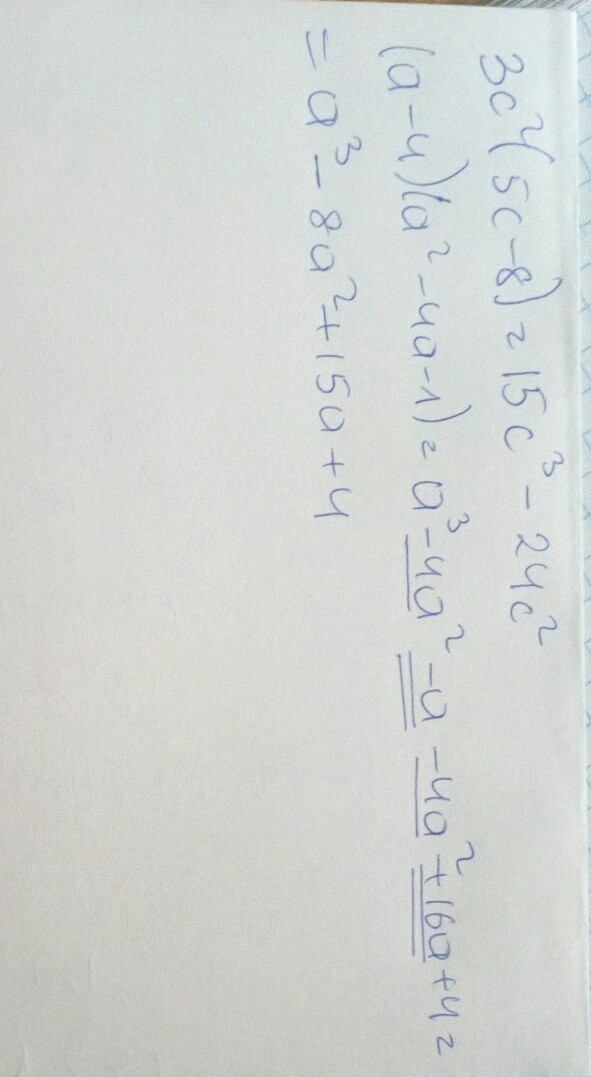 3c²(5c-8)=15c³-24c²
(a-4)(a²-4a-1)=a³-4a²-a-4a²+16a+4=
=a³-8a²+15a+4